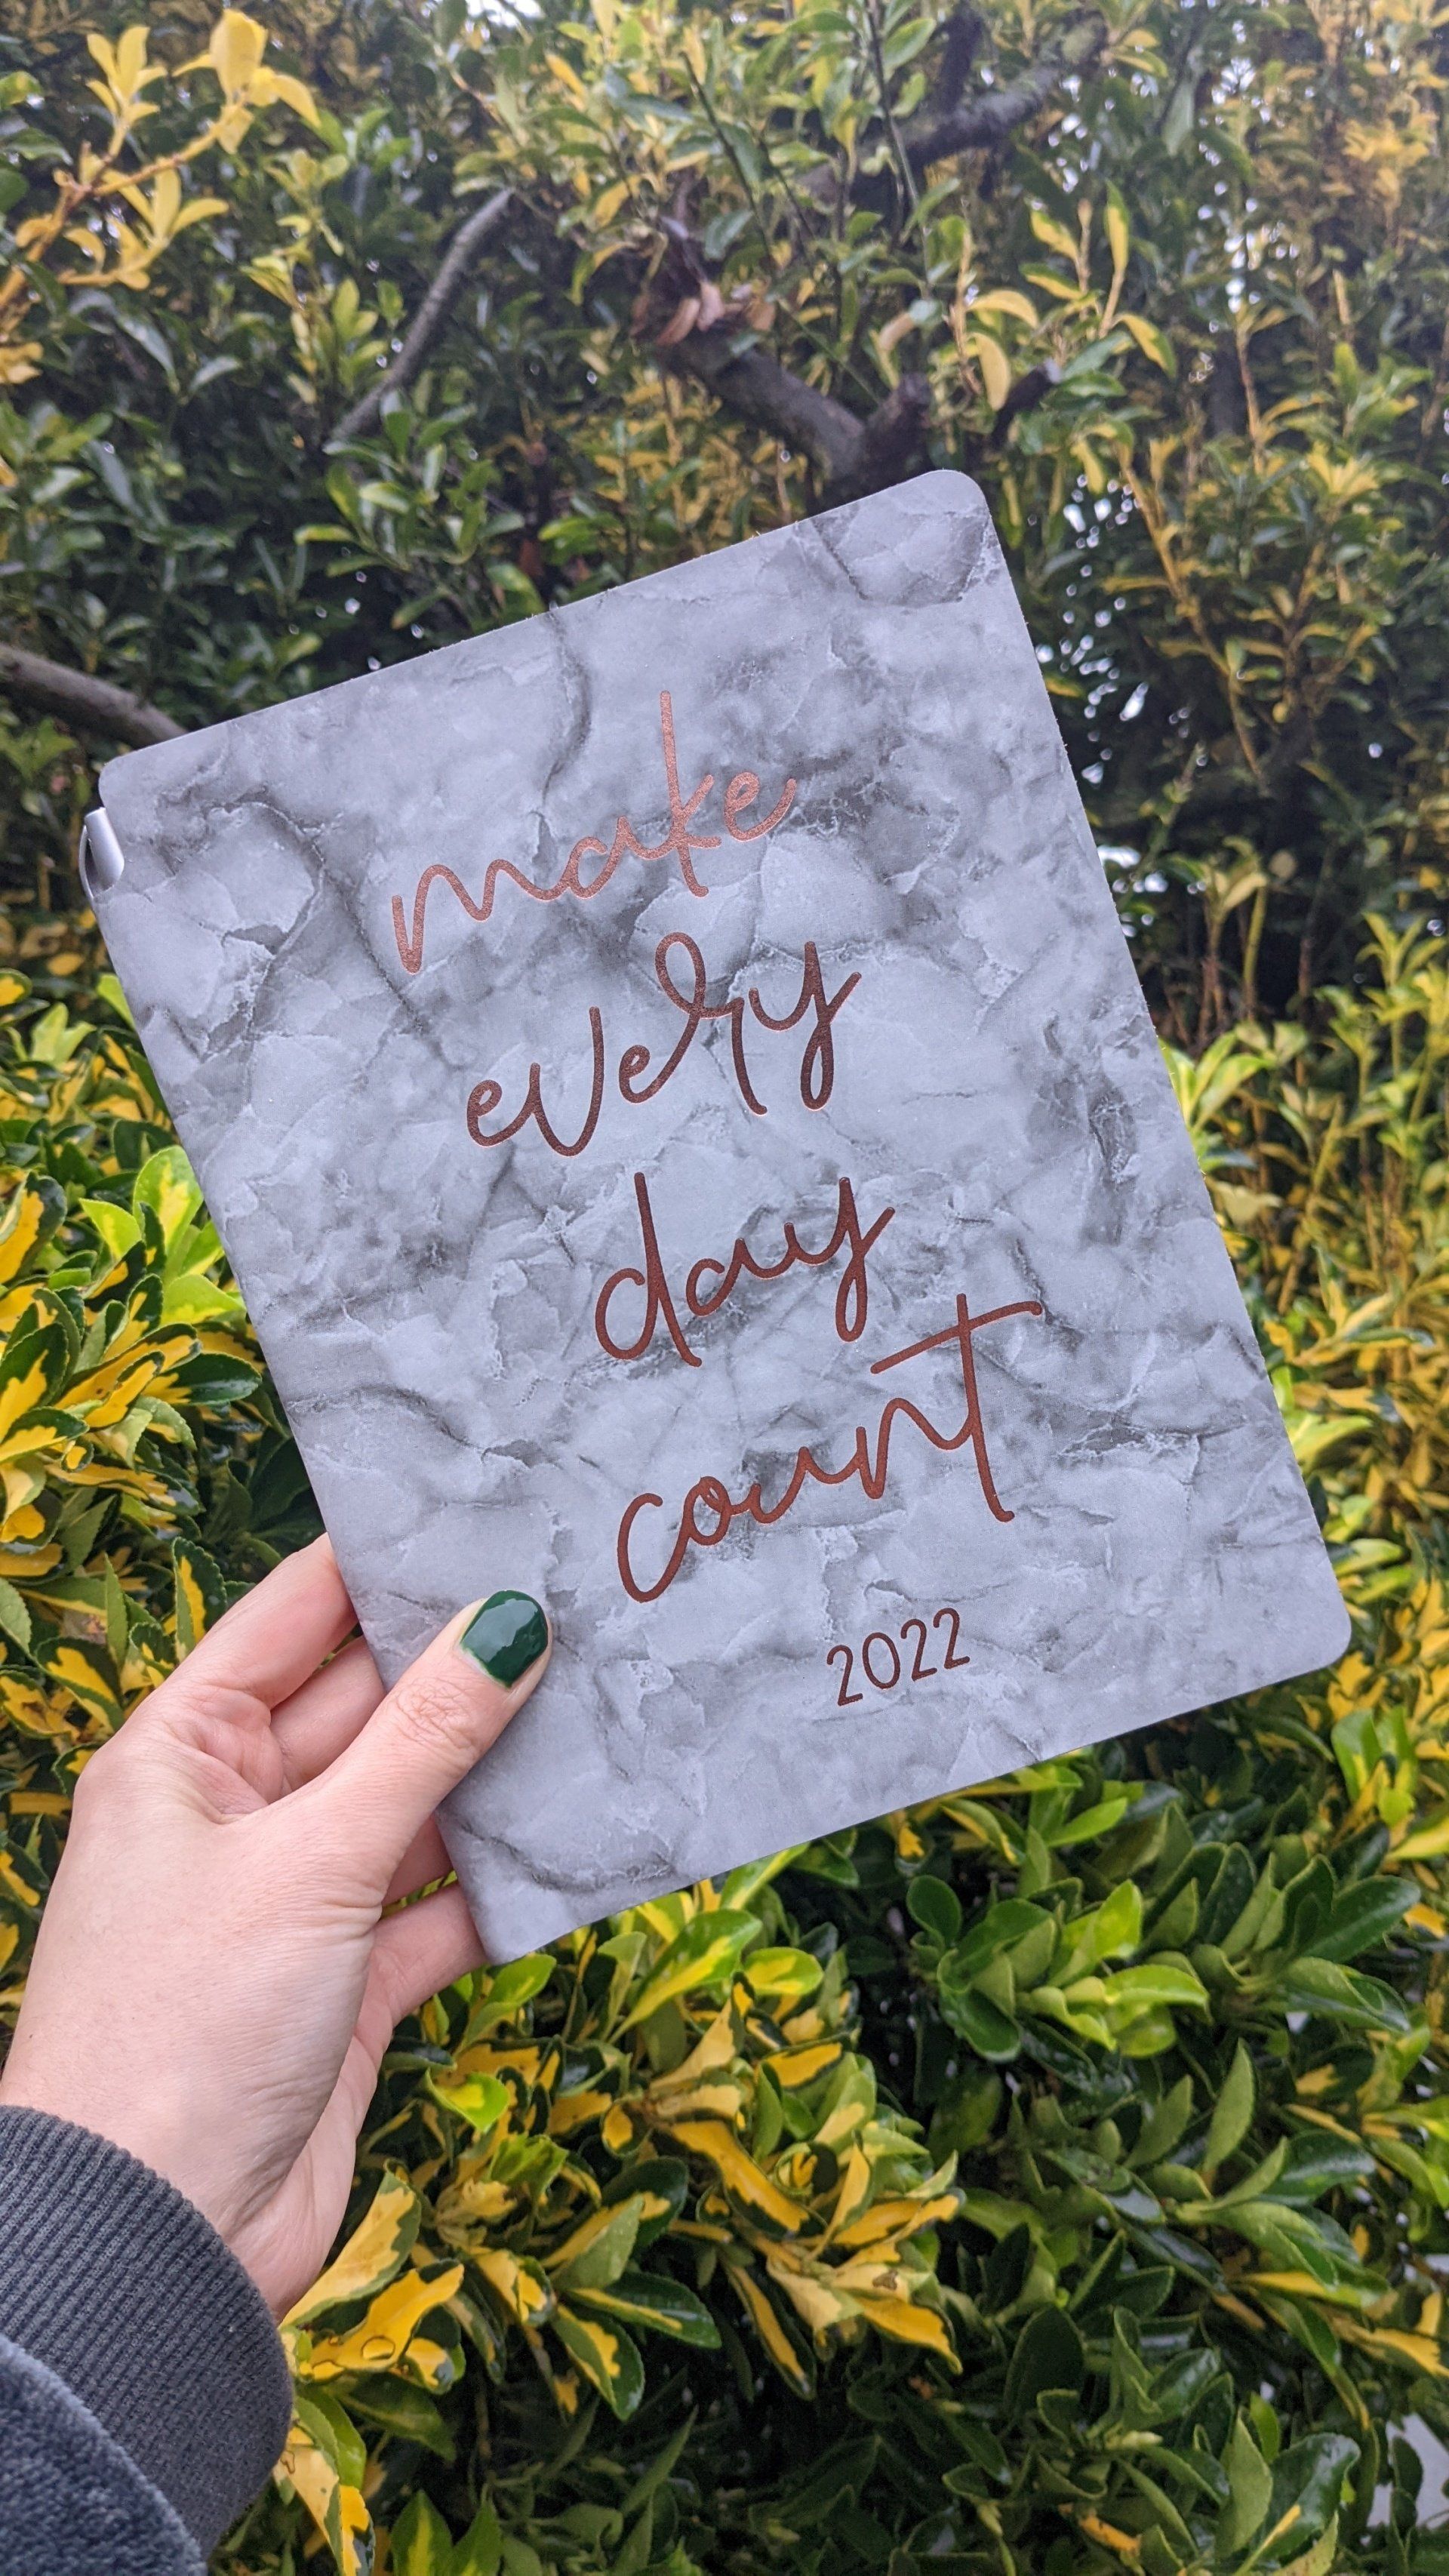 make
every
day
count
2022